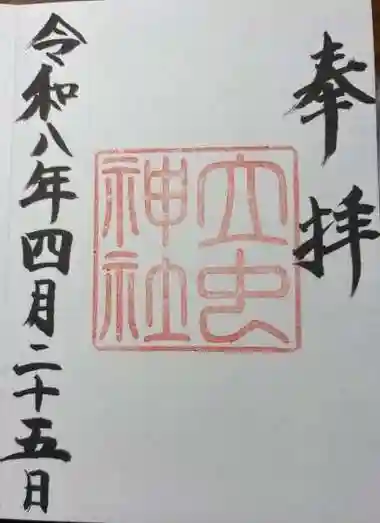 奉拝
大虫神社
令和八年四月二十五日